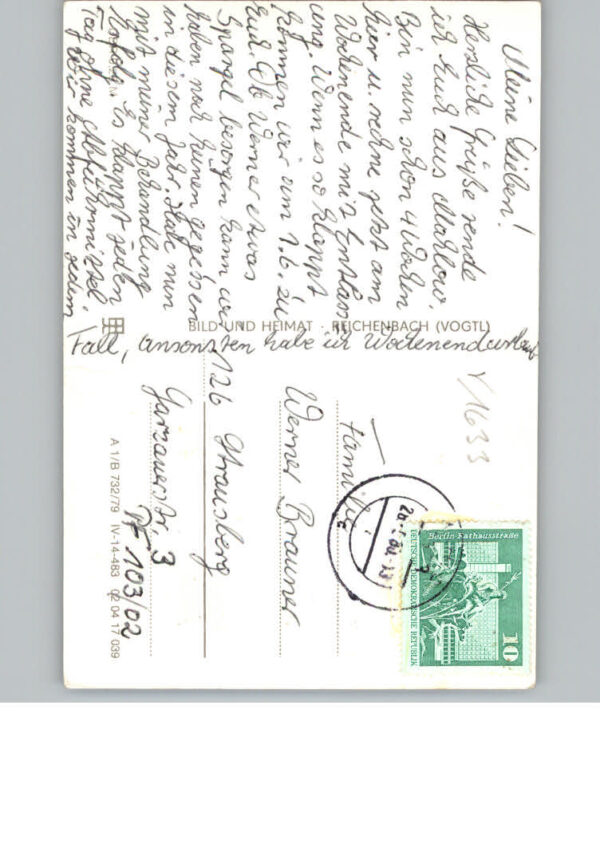 Meine Lieben!
Herzliche Grüße sende
ich Euch aus Marlow.
Bin nun schon 4 Wochen
hier u. rechne jetzt am
Wochenende mit Entlass-
ung. Wenn es so klappt
kommen wir am 1.6. zu
Euch. Ob Werner etwas
Spargel besorgen kann wir
haben noch keinen gegessen
in diesem Jahr. Hab nun
mit meiner Behandlung
Erfolg. Es klappt jeden
Tag ohne Abführmittel.
Wir kommen in jedem
Fall, ansonsten habe ich Wochenendurlaub
BILD UND HEIMAT · REICHENBACH (VOGTL)
V1633
Familie
Werner Brauner
126 Strausberg
Garzauerstr. 3
PF 103/02
A 1/B 732/79 IV-14-483 02 04 17 039
Berlin-Rathausstraße
DEUTSCHE DEMOKRATISCHE REPUBLIK
10